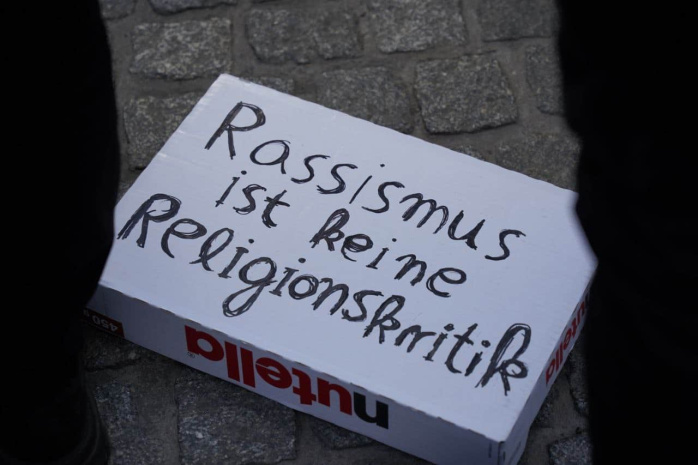 Rassismus
ist keine
Religionskritik
nutella
nutella
450 g